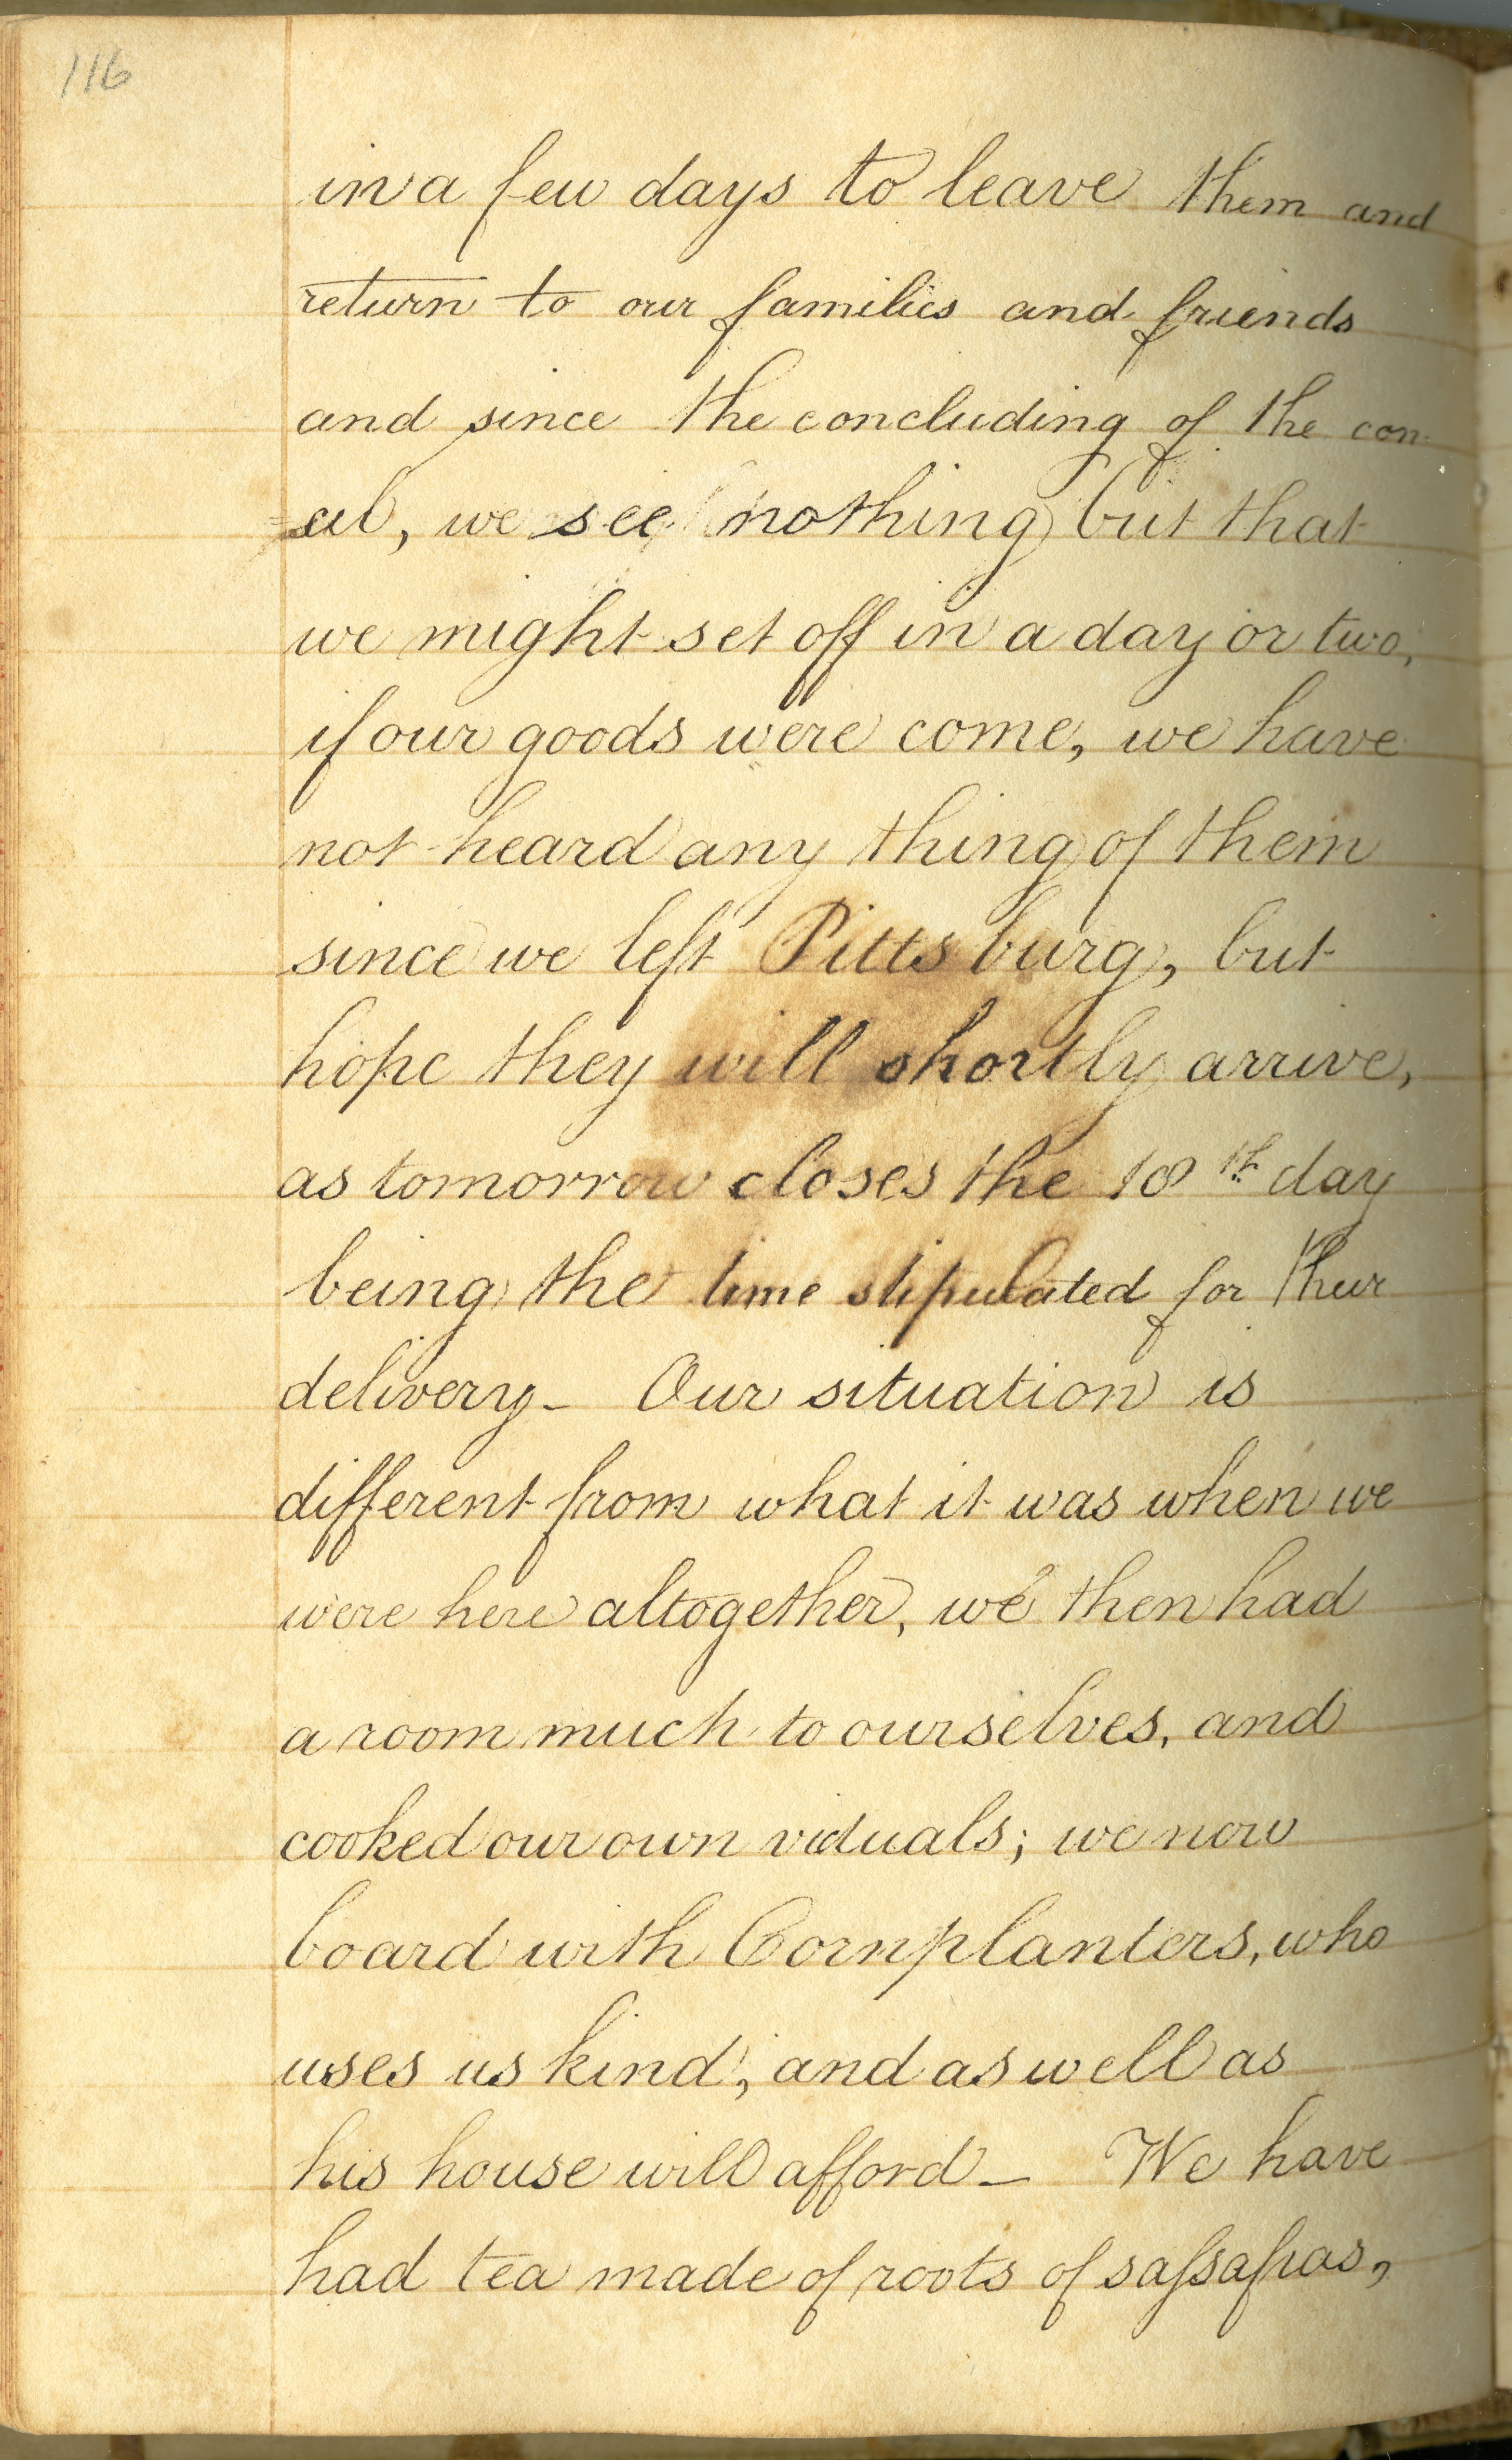 116
in a few days to leave them and
return to our families and friends
and since the concluding of the con-
=cil, we see nothing but that
we might set off in a day or two,
if our goods were come, we have
not heard any thing of them
since we left Pittsburg, but
hope they will shortly arrive,
as tomorrow closes the 18th day
being the time stipulated for their
delivery_ Our situation is
different from what it was when we
were here altogether, we then had
a room much to ourselves, and
cooked our own victuals; we now
board with Cornplanters, who
uses us kind, and as well as
his house will afford_ We have
had tea made of roots of sassafras,